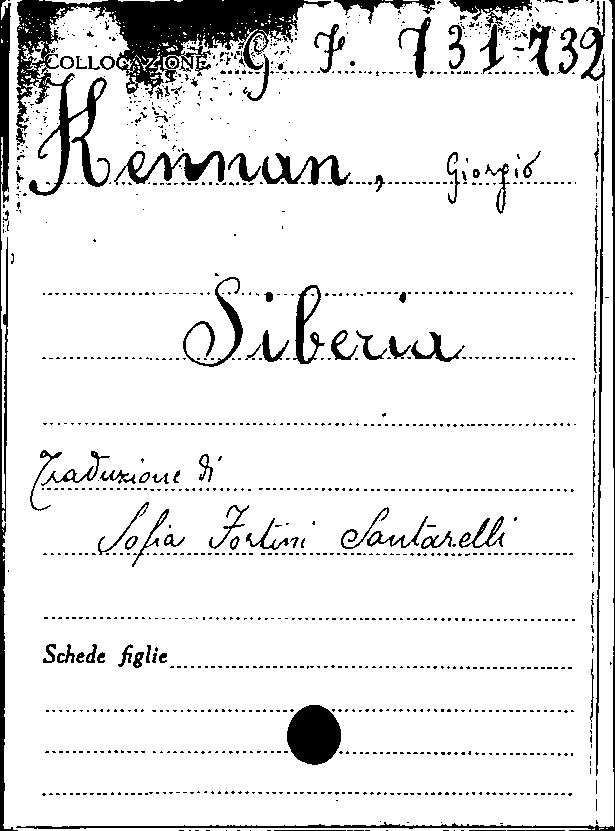 COLLOCAZIONE G. F. 731-732
Kennan, Giorgio
Siberia
Traduzione di
Sofia Fortini Santarelli
Schede figlie